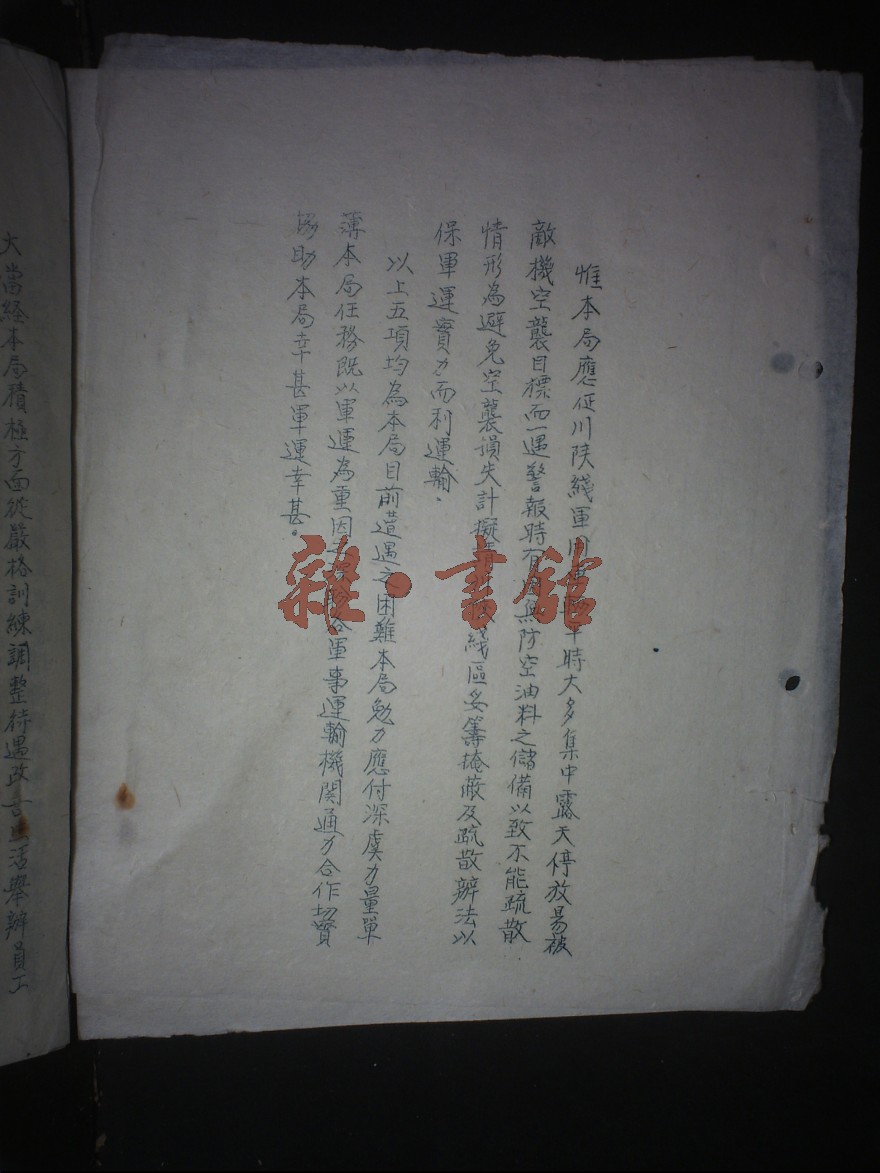 惟本局應征川陕綫軍時大多集中露天停放易被
敵機空襲目標而一遇警報時有無防空油料之儲備以致不能疏散
情形為避免空襲損失計擬綫區妥籌掩蔽及疏散辦法以
保軍運實力而利運輸．
以上五項均為本局目前遭遇之困難本局勉力應付深虞力量單
薄本局任務既以軍運為重因合軍事運輸機関通力合作切實
協助本局幸甚軍運幸甚。
大當経本局積極方面從嚴格訓練調整待遇改生活舉辦員工
雜·書館